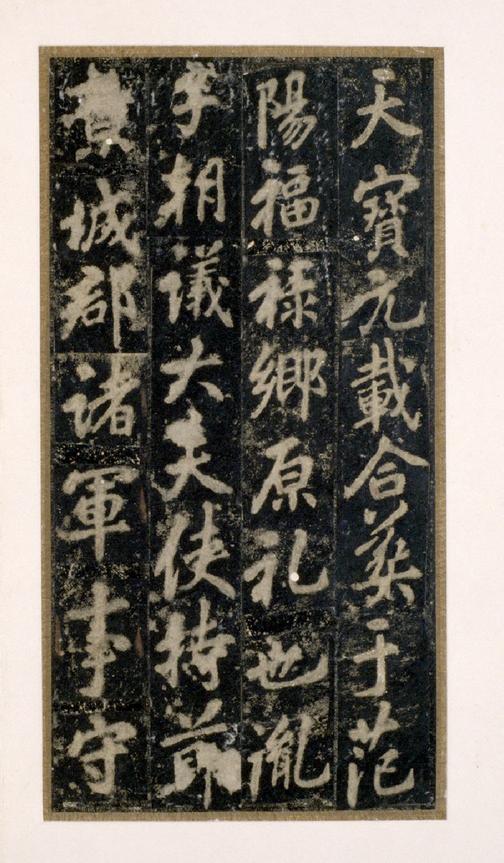 天寶元載合葬于范
陽福祿鄉原礼也胤
子朝議大夫使持節
城郡諸軍事守